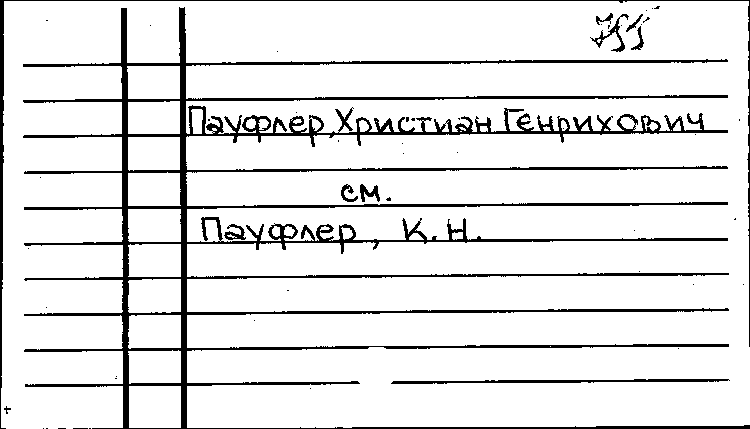 Пауфлер, Христиан Генрихович
см.
Пауфлер, К. Н.